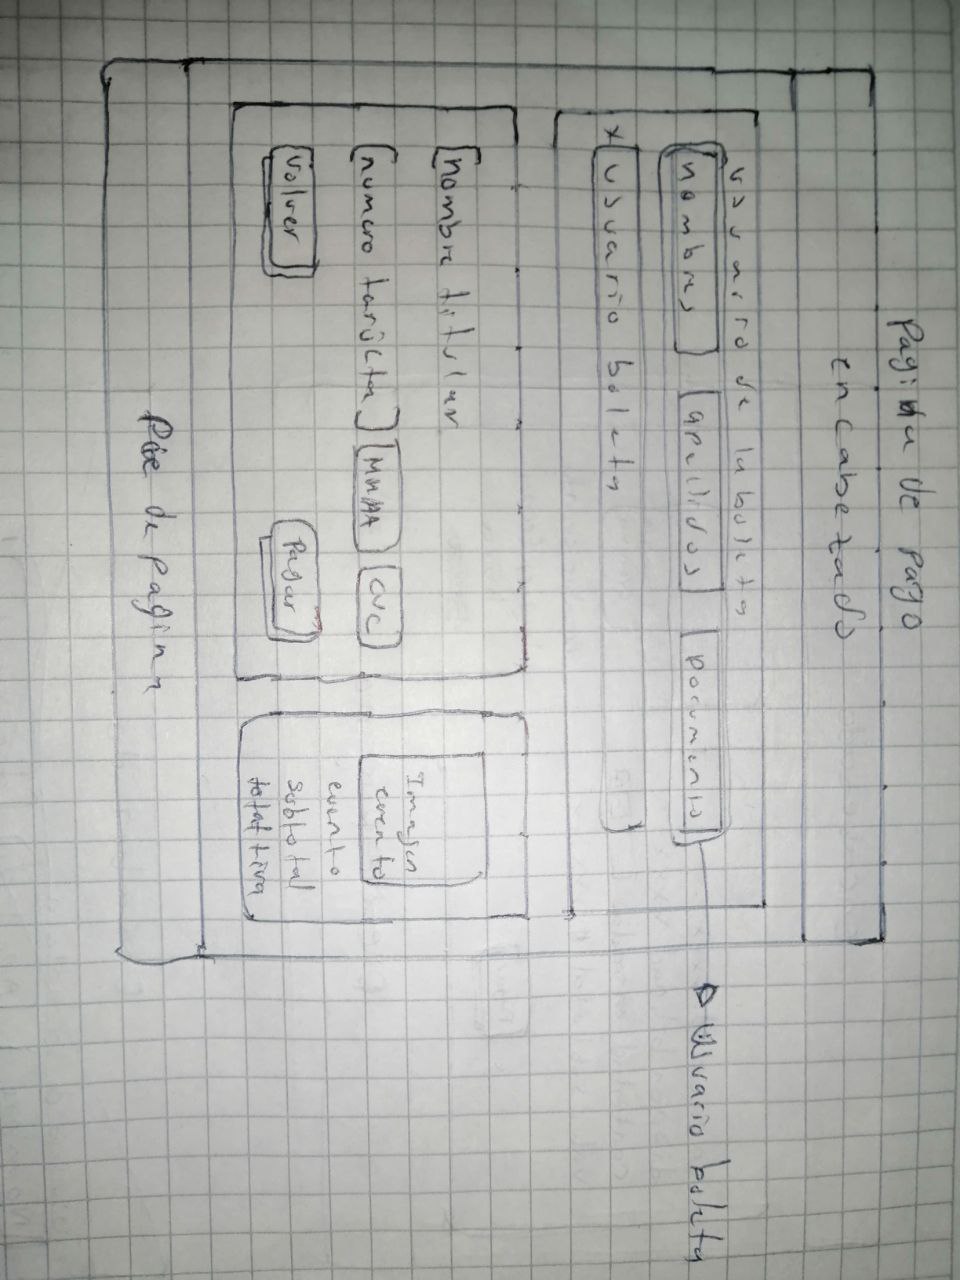 Pagina de pago
encabezado
usuario de la boleta
nombres apellidos Documento Usuario boleta
* usuario boleta
nombre titular
numero tarjeta MMAA CVC
Imagen
evento
evento
Volver Pagar
subtotal
total + iva
Pie de pagina